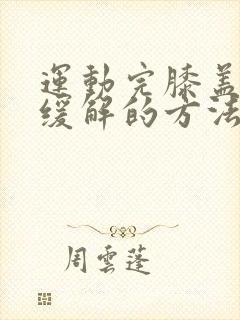 運動完膝蓋
緩解的方法
周雲蓬